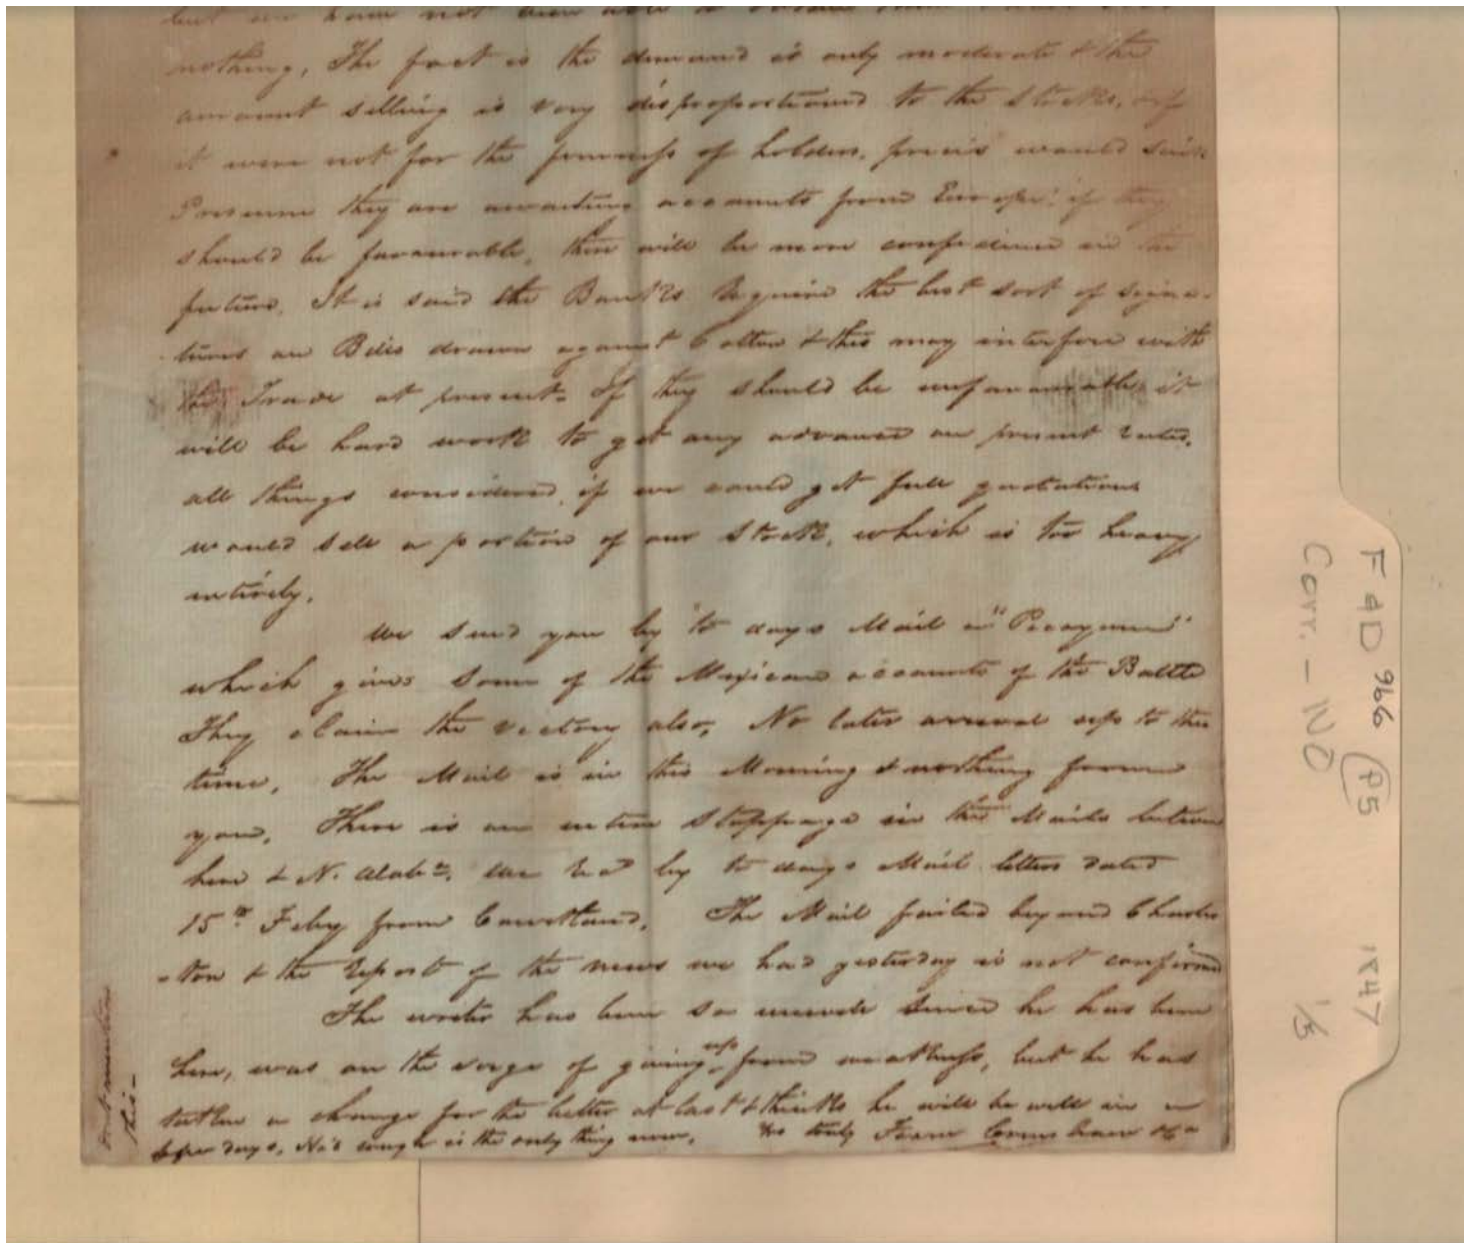 but we have not been able to
nothing, The fact is the demand is only moderate & the
amount selling is very disproportioned to the stocks, & if
it were not for the firmness of holders, prices would
Presume they are awaiting accounts from Europe: if they
should be favourable, there will be more confidence in the
future. It is said the Banks require the best sort of signa-
tures on Bills drawn against Cotton & this may interfere with
the Trade at present. If they should be unfavourable it
will be hard work to get any advance on present rates.
all things considered, if we could get full quotations
would sell a portion of our Stock, which is too heavy
entirely.
We send you by to days Mail a "Picayune"
which gives some of the Mexican accounts of the Battle
They claim the victory also, No later arrival up to this
time. The Mail is in this Morning & nothing from
you. There is an entire Stoppage in the Mails between
here & N. Alaba. We recd by to days Mail letters dated
15th Feby from Courtland. The Mail failed beyond Charles
-ton & the report of the news we had yesterday is not confirmed
The writer has been so unwell since he has been
here, was on the verge of giving up from weakness, but he has
taken a change for the better at last & thinks he will be well in a
few days, His cough is the only thing now. Yrs truly
dont mention
this -
F & D 966 (P5) 1847
Corr. - NO 1/3